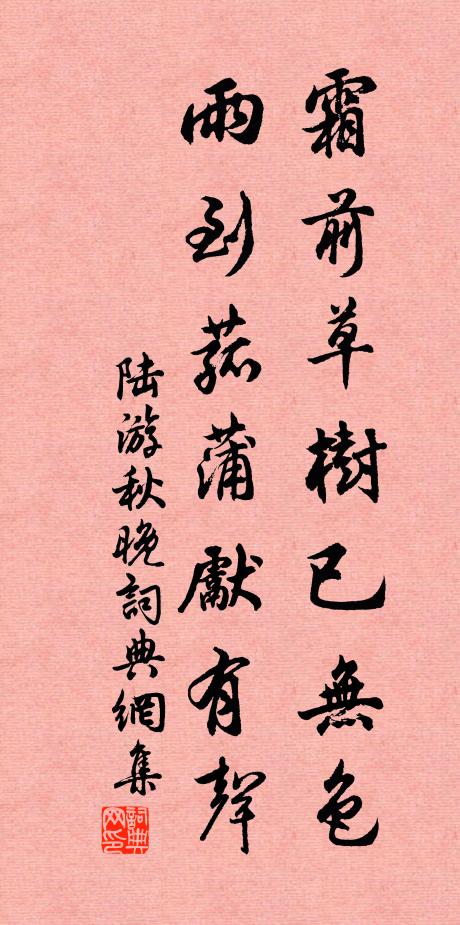 霜前草樹已無色
雨到菰蒲獻有聲
陆游秋晚詞典網集
詞典网印